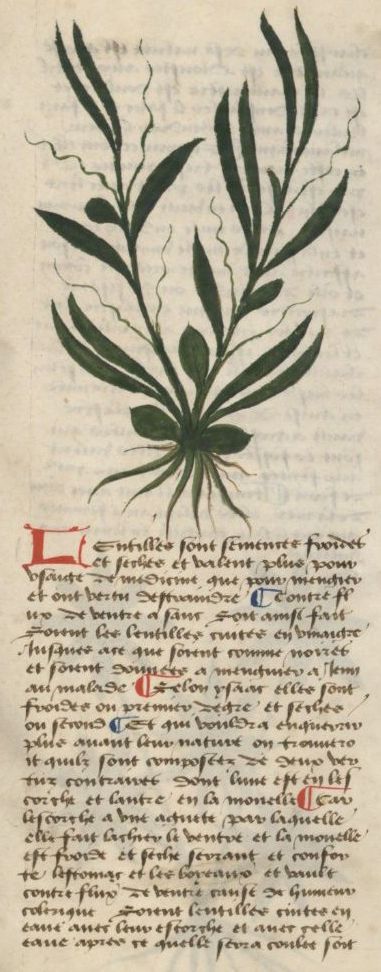 Lentilles sont semences froides
et seches et valent plus pour
usaige de medicine que pour mengier
et ont vertu destraindre ¶ Contre fl
ux de ventre a sanc soit ainsi fait
Soient les lentilles cuites en vinaigre
Jusques ace que soient comme noires
et soient donnees a menguier a Jeun
au malade ¶ Selon ysaac elles sont
froides ou premier degre et seches
ou second ¶ Et qui vouldra enquerir
plus auant leur nature on trouuero
it quilz sont composees de deux ver
tuz contraires dont lune est en les
corche et lautre en la mouelle ¶ Car
lescorche a vne aguete par laquelle
elle fait lachier le ventre et la mouelle
est froide et seche serrant et confor
te lestomac et les boyeaux et vault
contre flux de ventre cause de humeur
colerique Soient lentilles cuites en
eaue auec leur escorche et auec celle
eaue apres ce quelle sera coulee soit